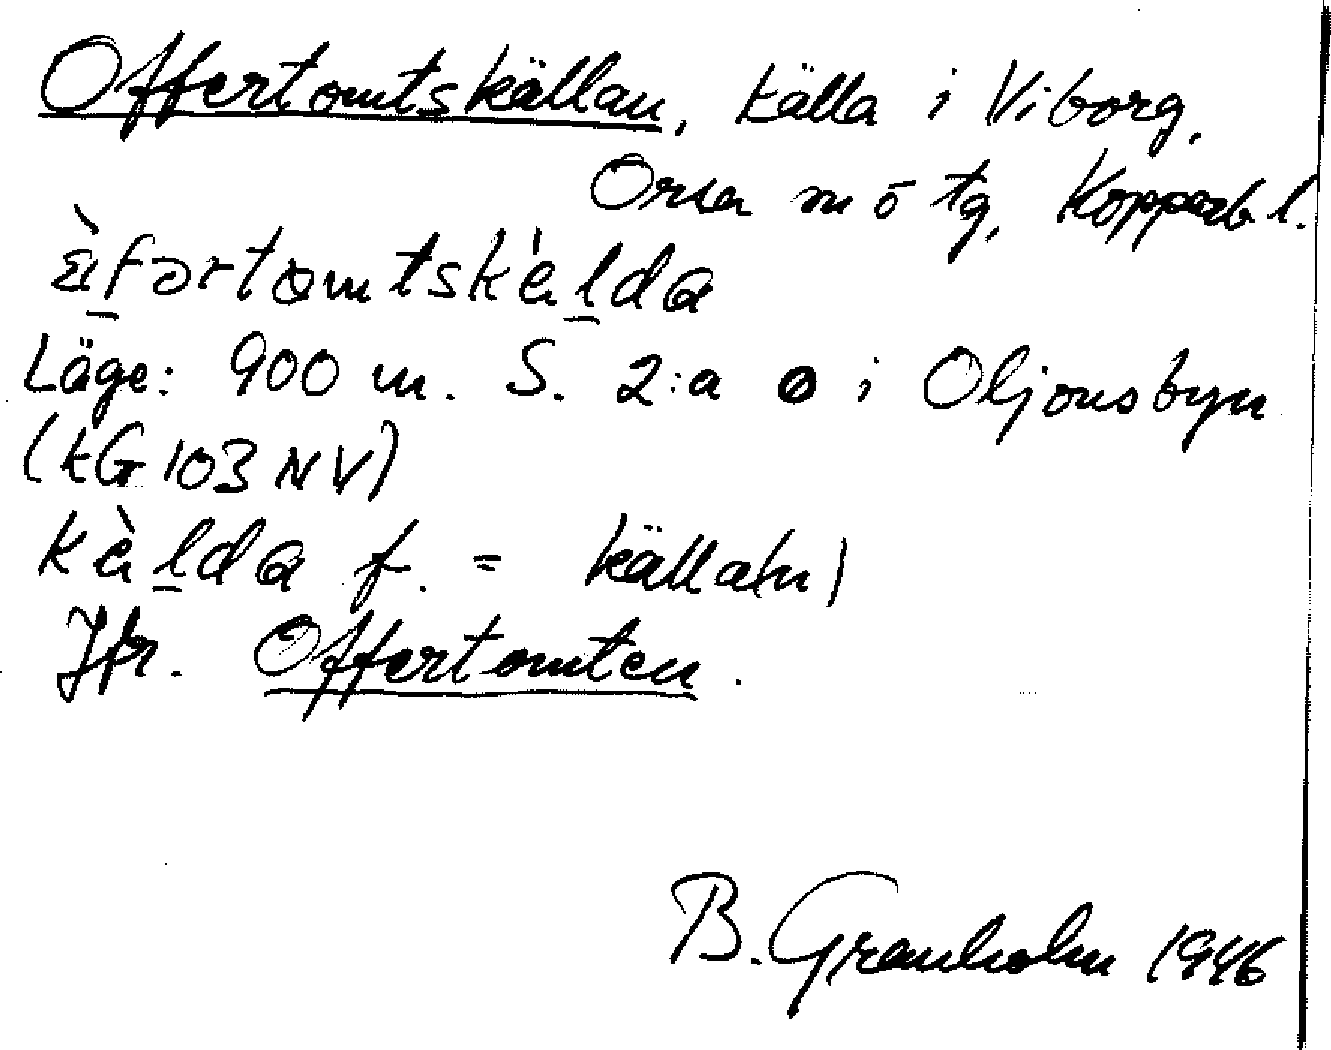 Offertomtskällan, källa i Viborg,
Orsa m ō tg, Kopparb l.
Läge: 900 m. S. 2:a o i Oljonsbyn
(kG 103 NV)
kèlda f. = källa(n)
Jfr. Offertomten.
B. Granholm 1946